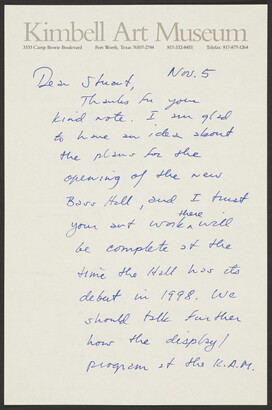 Kimbell Art Museum
3333 Camp Bowie Boulevard Fort Worth, Texas 76107-2744 817-332-8451 Telefax 817-877-1264
Nov. 5
Dear Stuart,
Thanks for your
kind note. I am glad
to have an idea about
the plans for the
opening of the new
Bass Hall, and I trust
there
your art work will
be complete at the
time the Hall has its
debut in 1998. We
should talk further
how the display/
program at the K.A.M.